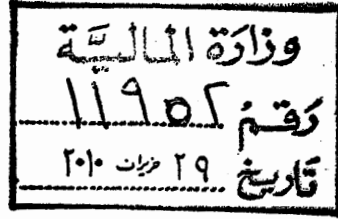 وزارة الماليَّة
رقم ١١٩٥٢
تاريخ ٢٩ حزيران ٢٠١٠